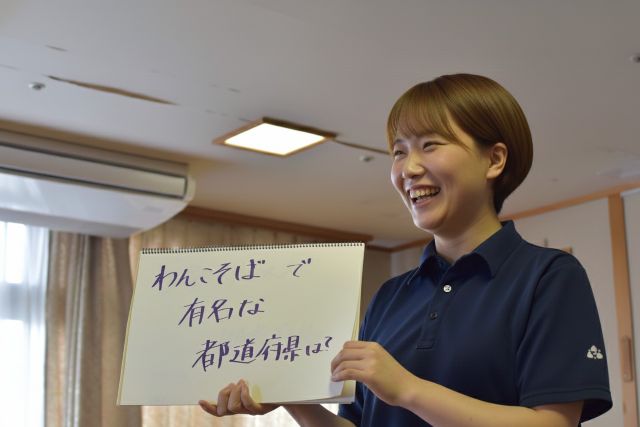 わんこそば で
有名な
都道府県は?